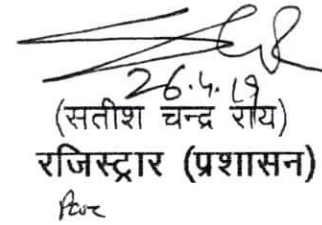 26.4.19
(सतीश चन्द्र राय)
रजिस्ट्रार (प्रशासन)